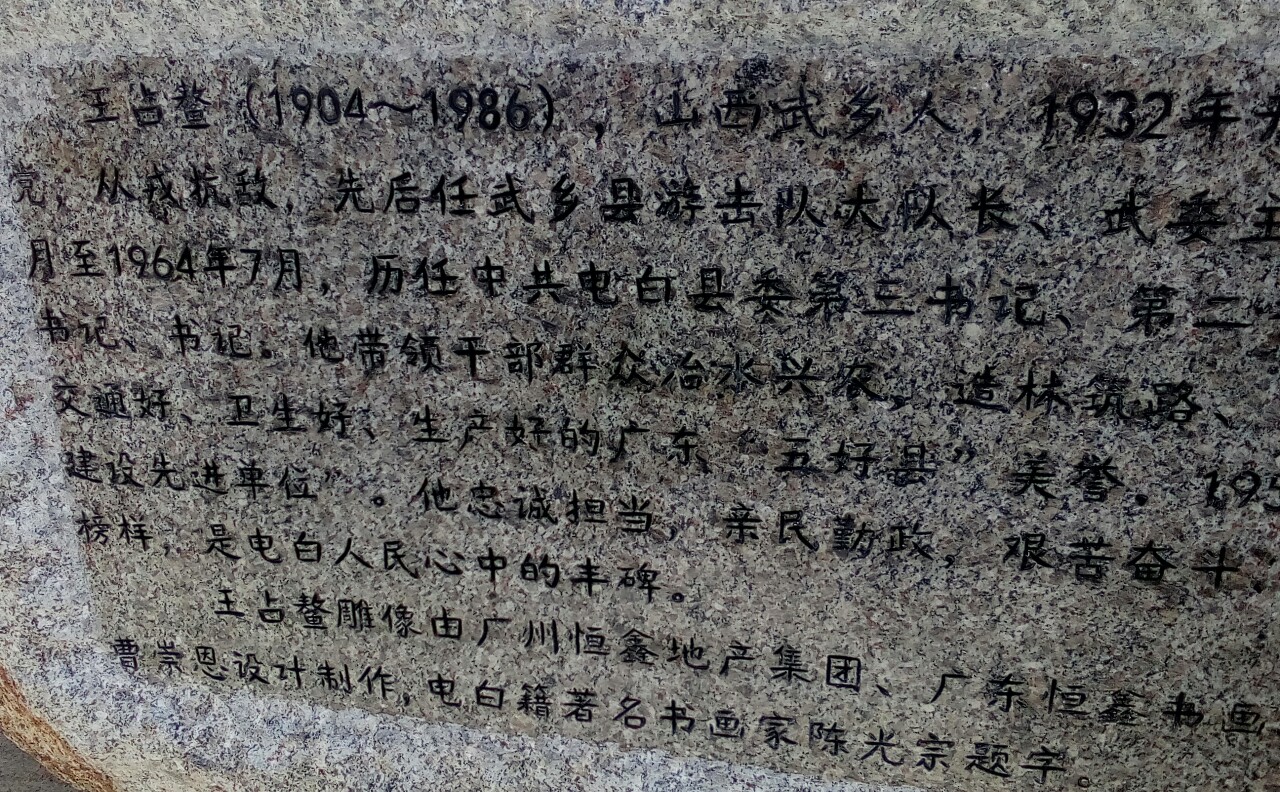 王占鳌（1904～1986），山西武乡人，1932年
党，从戎抗敌，先后任武乡县游击队大队长、武委主
月至1964年7月，历任中共电白县委第三书记、第二
书记、书记。他带领干部群众治水兴农，造林筑路、
交通好、卫生好、生产好的广东“五好县”美誉。195
建设先进单位”。他忠诚担当，亲民勤政，艰苦奋斗
榜样，是电白人民心中的丰碑。
王占鳌雕像由广州恒鑫地产集团、广东恒鑫书画
曹崇恩设计制作，电白籍著名书画家陈光宗题字。